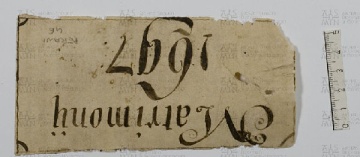 Matrimonij
1697